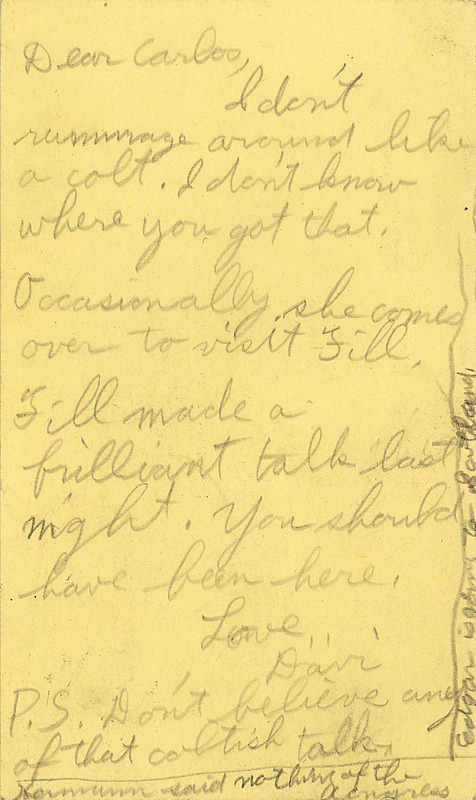 Dear Carlos,
I don't
rummage around like
a colt. I don't know
where you got that.
Occasionally she comes
over to visit Fill.
Fill made a
brilliant talk last
night. You should
have been here.
Love,
Davi
P.S. Don't believe any
of that coltish talk.
said nothing of the
Congress
to Scotland.